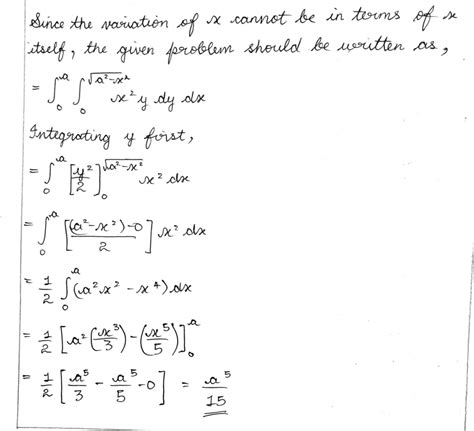 Since the variation of x cannot be in terms of x
itself, the given problem should be written as,
= ∫₀ᵃ ∫₀^√(a²-x²) x² y dy dx
Integrating y first,
= ∫₀ᵃ [y²/2]₀^√(a²-x²) x² dx
= ∫₀ᵃ [((a²-x²)-0)/2] x² dx
= 1/2 ∫₀ᵃ (a²x² - x⁴) dx
= 1/2 [a² (x³/3) - (x⁵/5)]₀ᵃ
= 1/2 [a⁵/3 - a⁵/5 - 0] = a⁵/15